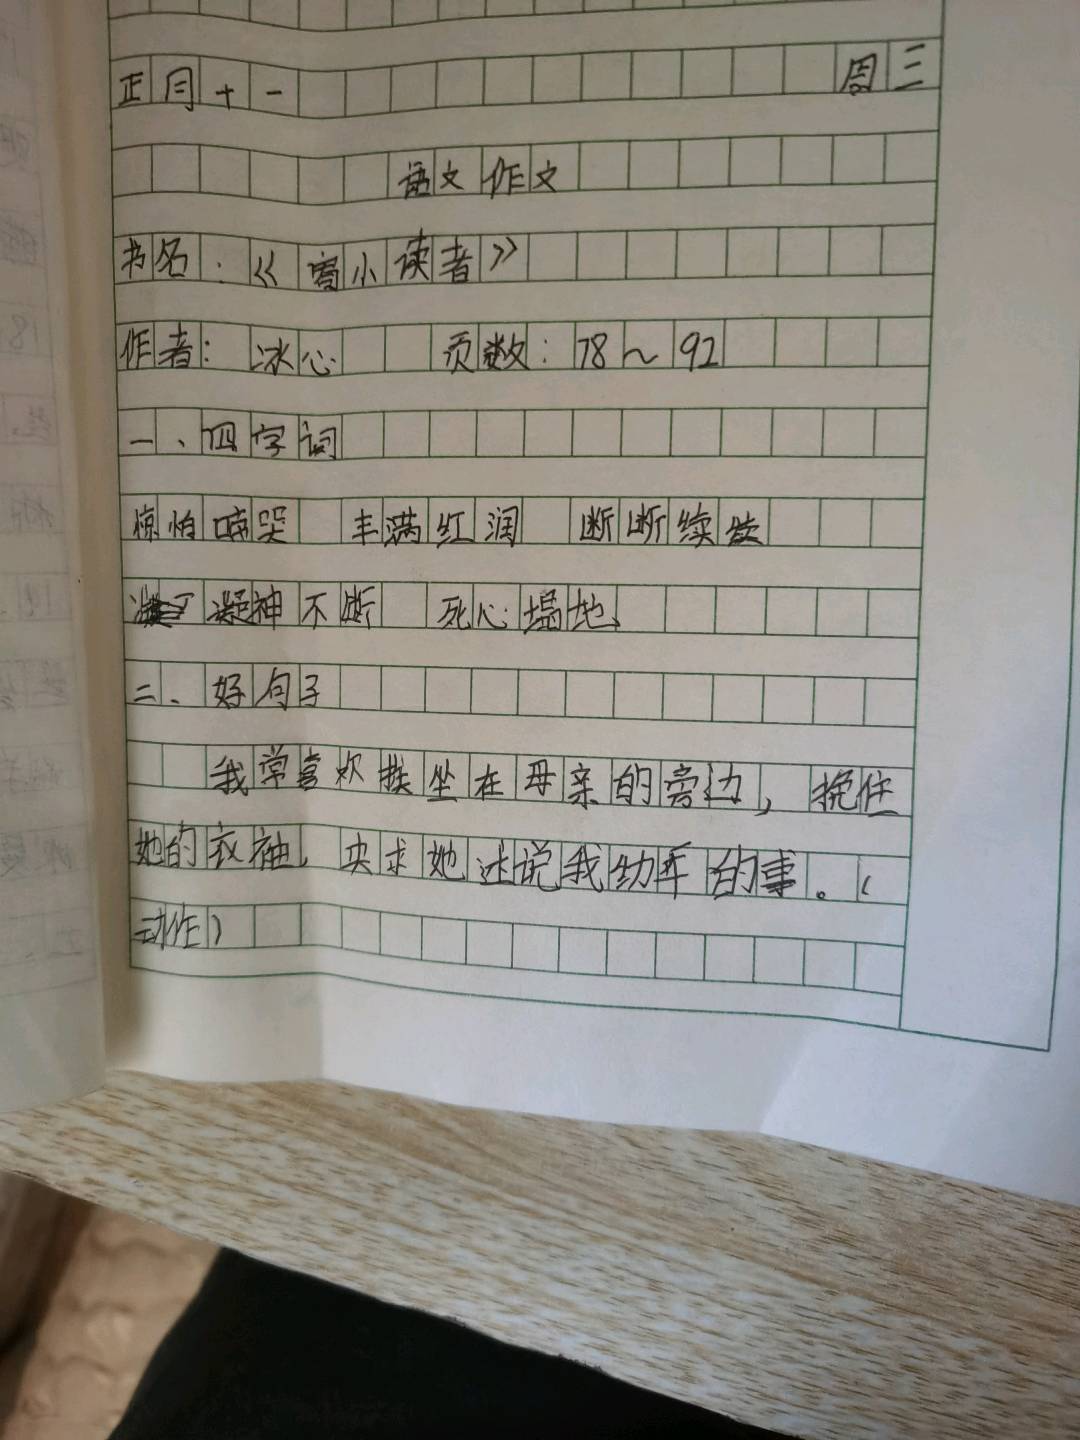 正月十一 周三
语文作文
书名：《寄小读者》
作者：冰心 页数：78～92
一、四字词
惊怕啼哭 丰满红润 断断续续
凝神不断 死心塌地
二、好句子
我常喜欢挨坐在母亲的旁边，挽住
她的衣袖，央求她述说我幼年的事。（
动作）